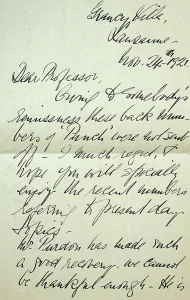 Villa,
Lausanne -
Nov. 24th 1921
Dear Professor,
Owing to Somebody's
remissness these back num-
bers of 'Punch' were not sent
off! - I much regret, &
hope you will specially
enjoy the recent numbers
referring to present day
topics -
Mr. has made such
a good recovery, we cannot
be thankful enough - He is